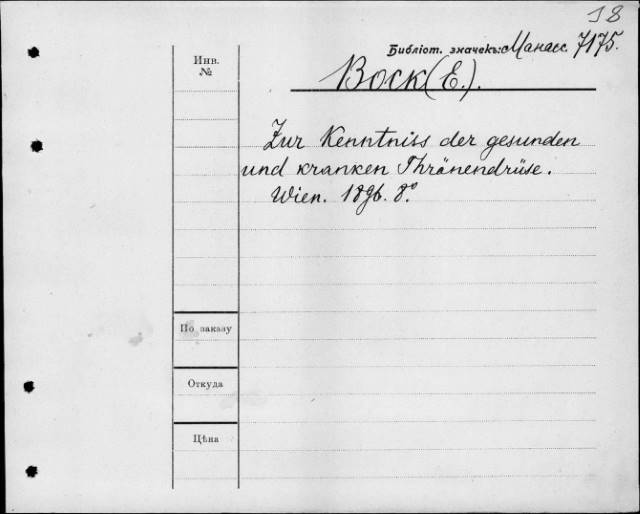 18
Библіот. значекъ: Манасс. 7175.
Инв.
№
Bock (E.).
Zur Kenntniss der gesunden
und kranken Thränendrüse.
Wien. 1896. 8º.
По заказу
Откуда
Цѣна